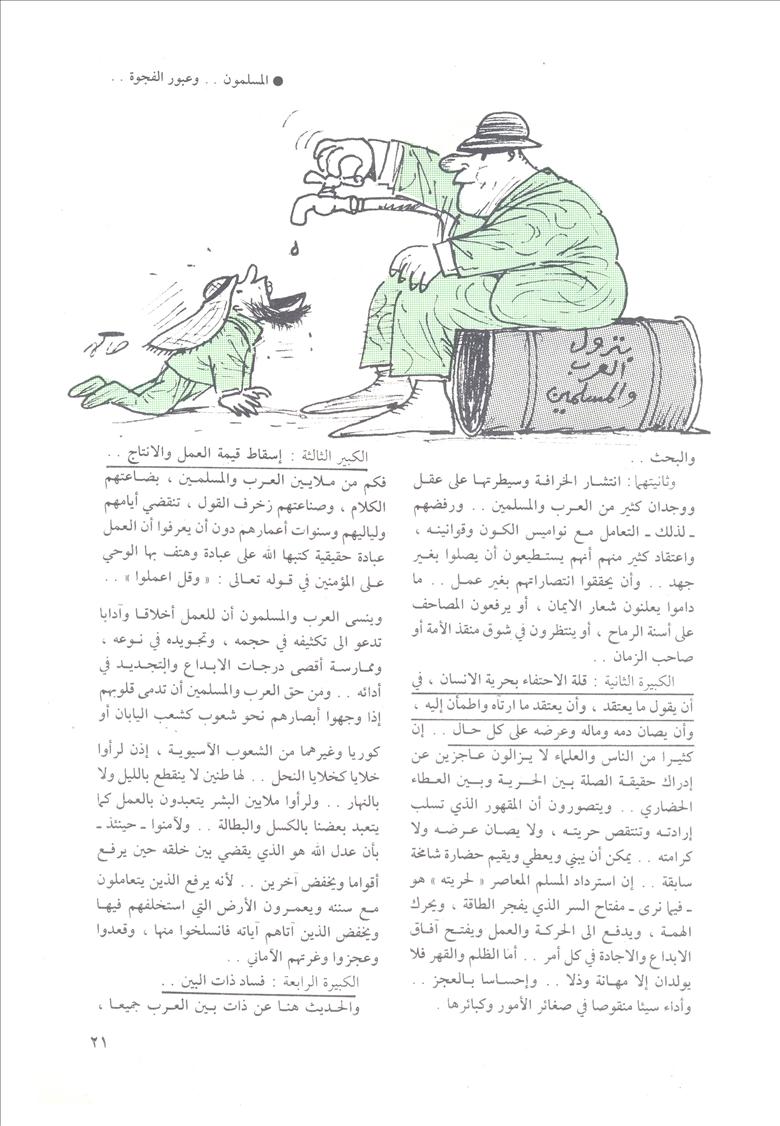 ● المسلمون . . وعبور الفجوة . .
بترول
العرب
والمسلمين
والبحث . .
وثانيتهما : انتشار الخرافة وسيطرتها على عقل
ووجدان كثير من العرب والمسلمين . . ورفضهم
ـ لذلك ـ التعامل مع نواميس الكون وقوانينه ،
واعتقاد كثير منهم أنهم يستطيعون أن يصلوا بغير
جهد . . وأن يحققوا انتصاراتهم بغير عمل . . ما
داموا يعلنون شعار الايمان ، أو يرفعون المصاحف
على أسنة الرماح ، أو ينتظرون في شوق منقذ الأمة أو
صاحب الزمان . .
الكبيرة الثانية : قلة الاحتفاء بحرية الانسان ، في
أن يقول ما يعتقد ، وأن يعتقد ما ارتآه واطمأن إليه ،
وأن يصان دمه وماله وعرضه على كل حال . . إن
كثيرا من الناس والعلماء لا يزالون عاجزين عن
إدراك حقيقة الصلة بين الحرية وبين العطاء
الحضاري . . ويتصورون أن المقهور الذي تسلب
إرادته وتنتقص حريته ، ولا يصان عرضه ولا
كرامته . . يمكن أن يبني ويعطي ويقيم حضارة شامخة
سابقة . . إن استرداد المسلم المعاصر « لحريته » هو
ـ فيما نرى ـ مفتاح السر الذي يفجر الطاقة ، ويحرك
الهمة ، ويدفع الى الحركة والعمل ويفتح آفاق
الابداع والاجادة في كل أمر . . أما الظلم والقهر فلا
يولدان إلا مهانة وذلا . . وإحساسا بالعجز . .
وأداء سيئا منقوصا في صغائر الأمور وكبائرها .
الكبير الثالثة : إسقاط قيمة العمل والانتاج . .
فكم من ملايين العرب والمسلمين ، بضاعتهم
الكلام ، وصناعتهم زخرف القول ، تنقضي أيامهم
ولياليهم وسنوات أعمارهم دون أن يعرفوا أن العمل
عبادة حقيقية كتبها الله على عبادة وهتف بها الوحي
على المؤمنين في قوله تعالى : « وقل اعملوا » . .
وينسى العرب والمسلمون أن للعمل أخلاقا وآدابا
تدعو الى تكثيفه في حجمه ، وتجويده في نوعه ،
وممارسة أقصى درجات الابداع والتجديد في
أدائه . . ومن حق العرب والمسلمين أن تدمى قلوبهم
إذا وجهوا أبصارهم نحو شعوب كشعب اليابان أو
كوريا وغيرهما من الشعوب الآسيوية ، إذن لرأوا
خلايا كخلايا النحل . . لها طنين لا ينقطع بالليل ولا
بالنهار . . ولرأوا ملايين البشر يتعبدون بالعمل كما
يتعبد بعضنا بالكسل والبطالة . . ولآمنوا ـ حينئذ ـ
بأن عدل الله هو الذي يقضي بين خلقه حين يرفع
أقواما ويخفض آخرين . . لأنه يرفع الذين يتعاملون
مع سننه ويعمرون الأرض التي استخلفهم فيها
ويخفض الذين آتاهم آياته فانسلخوا منها ، وقعدوا
وعجزوا وغرتهم الأماني . .
الكبيرة الرابعة : فساد ذات البين . .
والحديث هنا عن ذات بين العرب جميعا ،
٢١